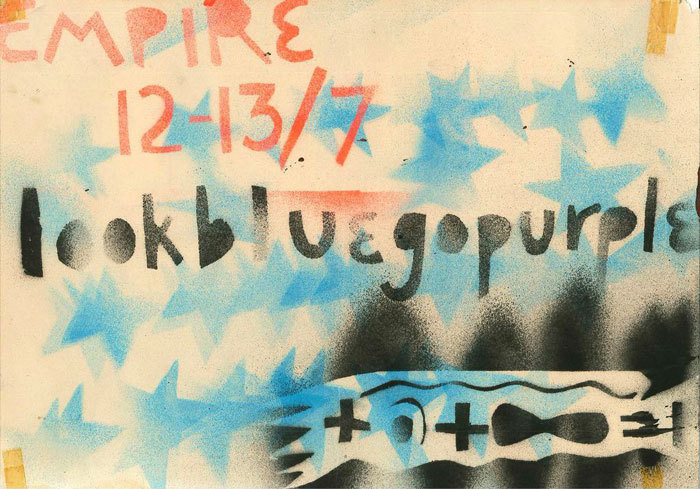 EMPIRE
12-13/7
lookbluegopurple